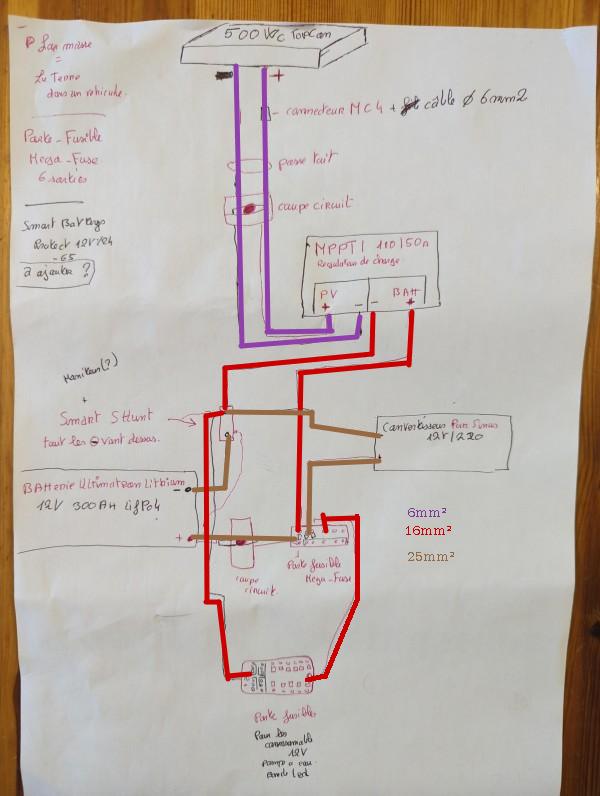 500 Wc TopCon
- +
P Las masse
=
La Terre
dans un vehicule.
Porte-Fusible
Mega-Fuse
6 sorties
Smart Battery
Protect 12V/24
-65
à ajouter ?
connecteur MC4 + câble Ø 6mm2
passe toit
coupe circuit
MPPT 100/50A
Regulateur de charge
PV BAtt
+ - - +
Moniteur(?)
+
Smart Shunt
tout les ⊖ vont dessus.
Convertisseur Pur Sinus
12V/220
BAtterie Ultimatron Lithium
12V 300AH LifPo4
-
+
6mm²
16mm²
25mm²
coupe
circuit.
Porte fusible
Mega-Fuse
Porte fusibles
Pour les
consommable
12V
Pompe a eau
Led